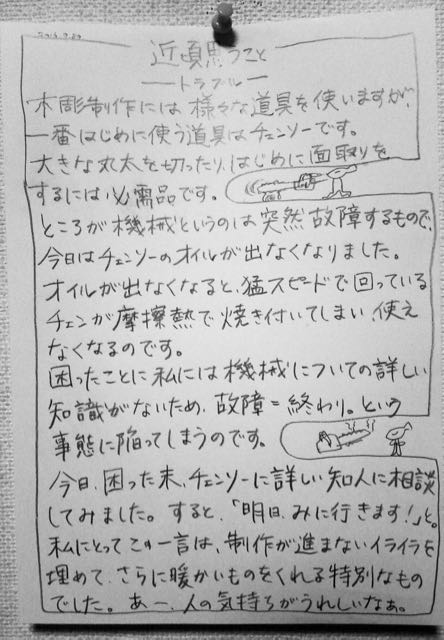 近頃思うこと
―トラブル―
木彫制作には様々な道具を使いますが、
一番はじめに使う道具はチェンソーです。
大きな丸太を切ったり、はじめに面取りを
するには必需品です。
ところが機械というのは突然故障するもので、
今日はチェンソーのオイルが出なくなりました。
オイルが出なくなると、猛スピードで回っている
チェンが摩擦熱で焼き付いてしまい、使え
なくなるのです。
困ったことに私には機械についての詳しい
知識がないため、故障=終わり。という
事態に陥ってしまうのです。
今日、困った末、チェンソーに詳しい知人に相談
してみました。すると、「明日、みに行きます!」と。
私にとってこの一言は、制作が進まないイライラを
埋めて、さらに暖かいものをくれる特別なもの
でした。あー、人の気持ちがうれしいなぁ。